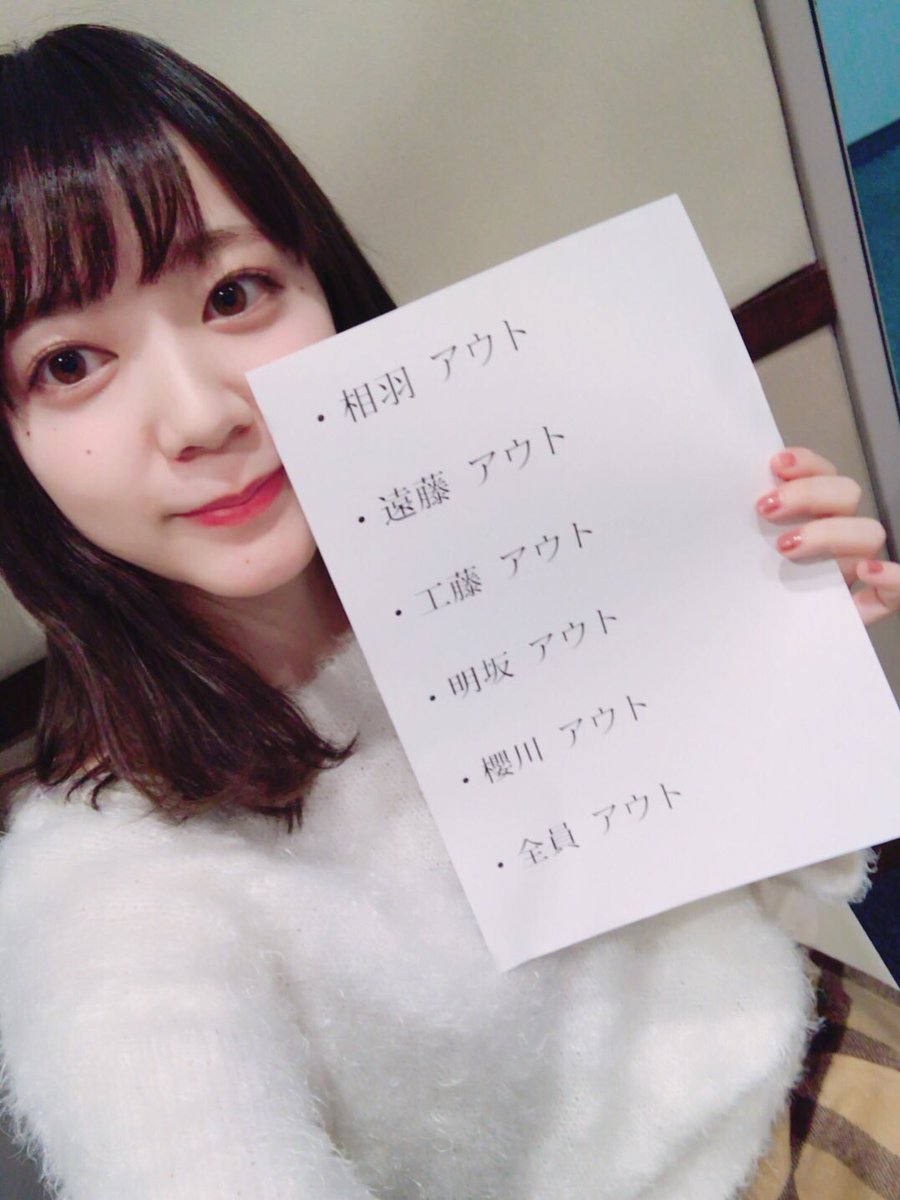 ・相羽 アウト
・遠藤 アウト
・工藤 アウト
・明坂 アウト
・櫻川 アウト
・全員 アウト